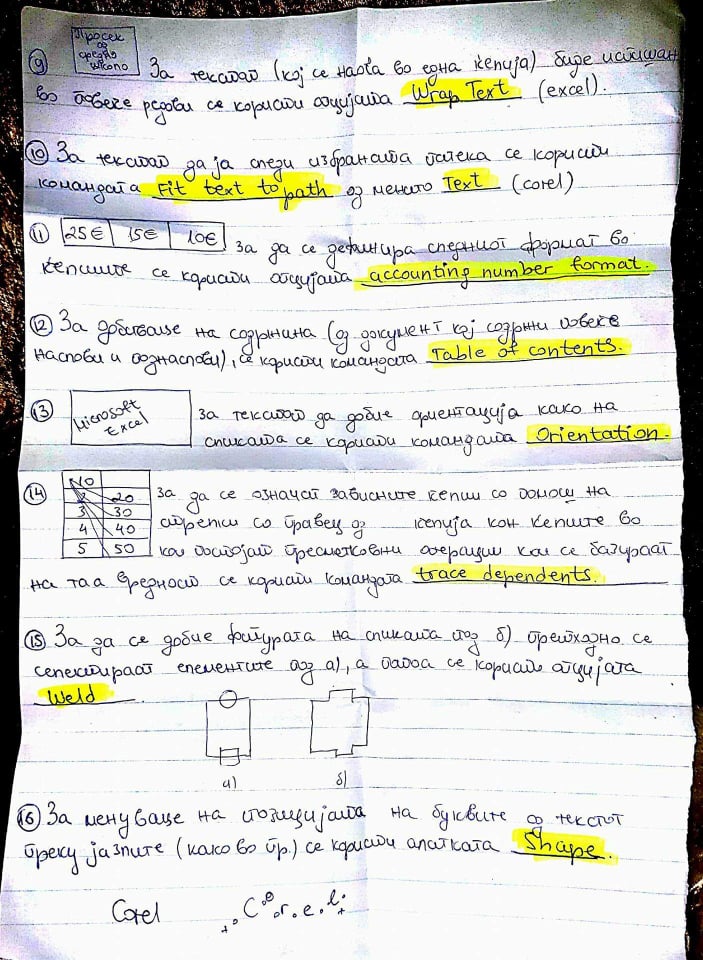 Просек
од
средно
школо
9 За текстот (кој се наоѓа во една ќелија) биде испишан
во повеќе редови се користи опцијата Wrap Text (excel).
10 За текстот да ја следи избраната патека се користи
командата Fit text to path од менито Text (corel)
11 25€ 15€ 10€ За да се дефинира следниот формат во
ќелиите се користи опцијата accounting number format.
12 За добивање на содржина (од документ кој содржи повеќе
наслови и поднаслови), се користи командата Table of contents.
13 Microsoft Excel За текстот да добие ориентација како на
сликата се користи командата Orientation.
14 За да се означат зависните ќелии со помош на
NO
2 20
3 30
4 40
5 50
стрелки со правец од ќелија кон ќелиите во
кои постојат пресметковни операции кои се базираат
на таа вредност се користи командата trace dependents.
15 За да се добие фигурата на сликата под б) претходно се
селектираат елементите под а), а потоа се користи опцијата
Weld
а) б)
16 За менување на позицијата на буквите од текстот
преку јазлите (како во пр.) се користи алатката Shape.
Corel C o r e l